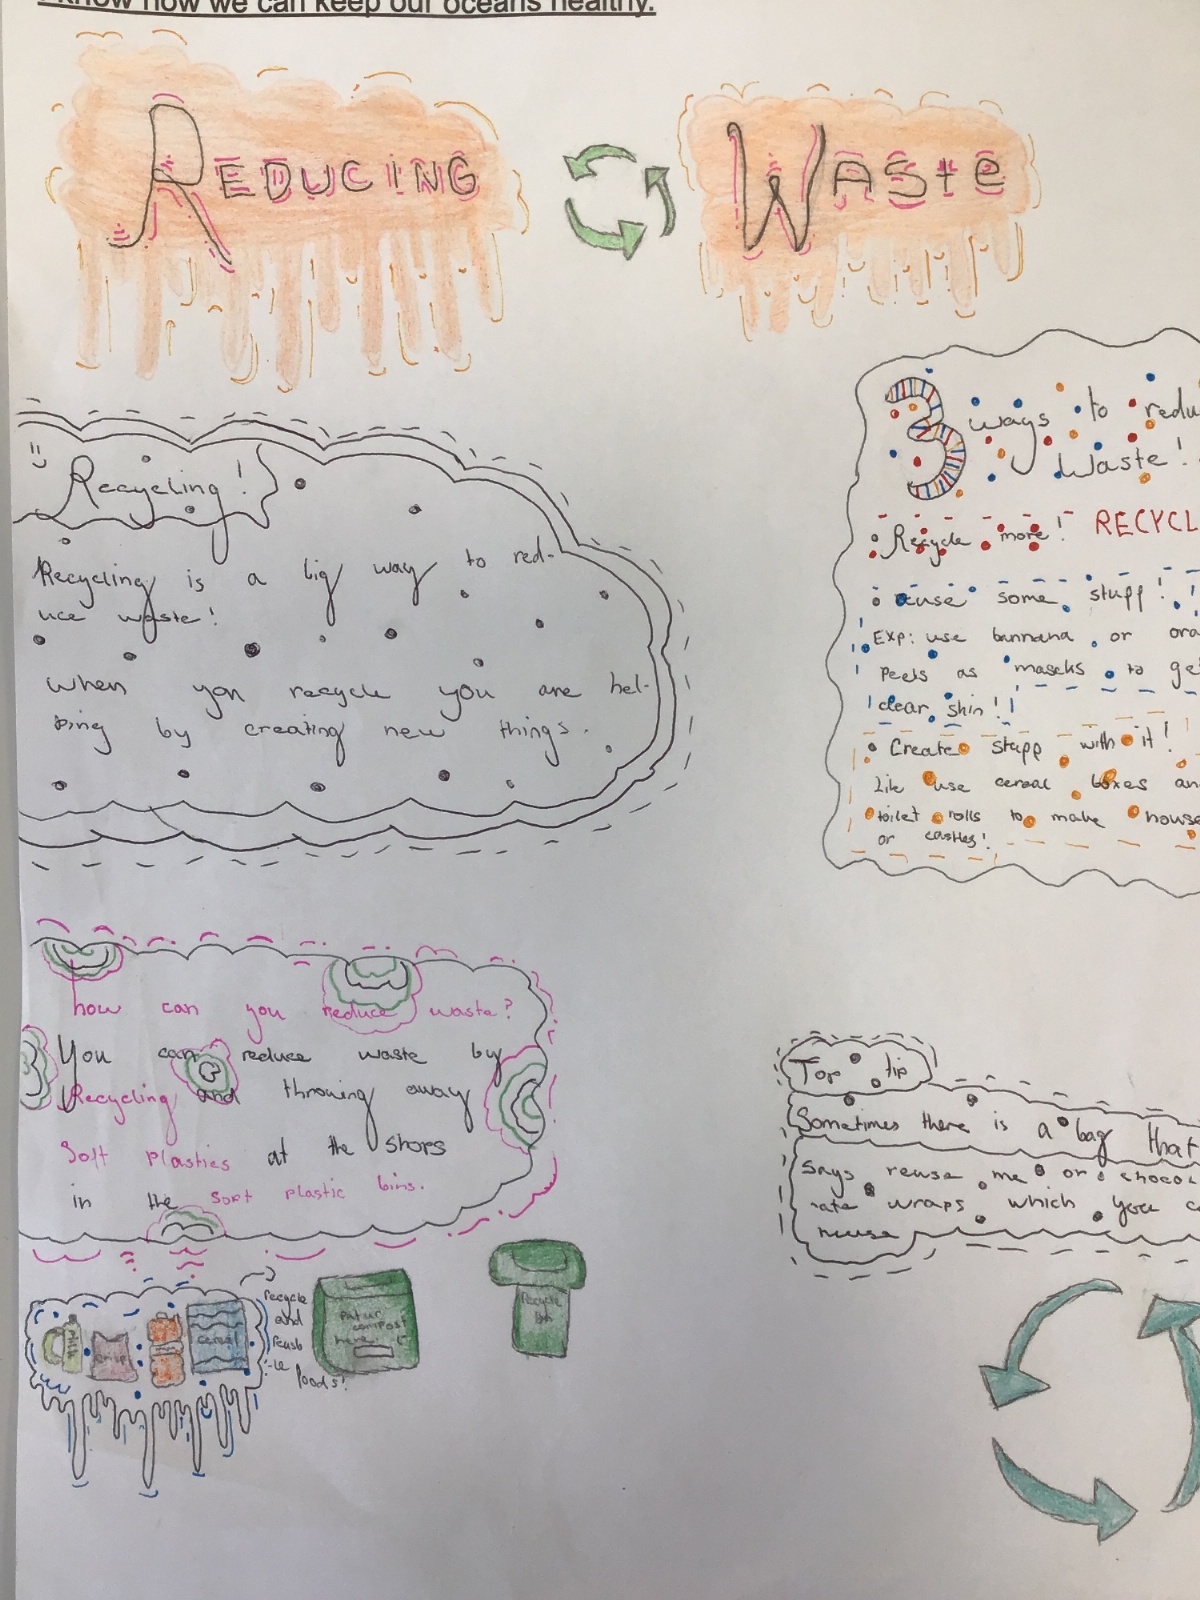 I know how we can keep our oceans healthy.
REDUCING WASte
Recycling!
Recycling is a big way to red-
uce waste!
when you recycle you are hel-
ping by creating new things.
3 ways to redu
Waste!
• Recycle more! RECYCL
• reuse some stuff!
Exp: use bannana or ora
Peels as mascks to ge
clear skin!!
• Create stuff with it!
Like use cereal boxes an
toilet rolls to make house
or castles!
how can you reduce waste?
You can reduce waste by
Recycling and throwing away
Soft plastics at the shops
in the soft plastic bins.
Top tip
Sometimes there is a bag that
says reuse me or chocol
-ate wraps which you c
reuse
Milk
cereal
recycle
and
reusb
-le
foods!
Put ur
compost
here
Recycle
bin